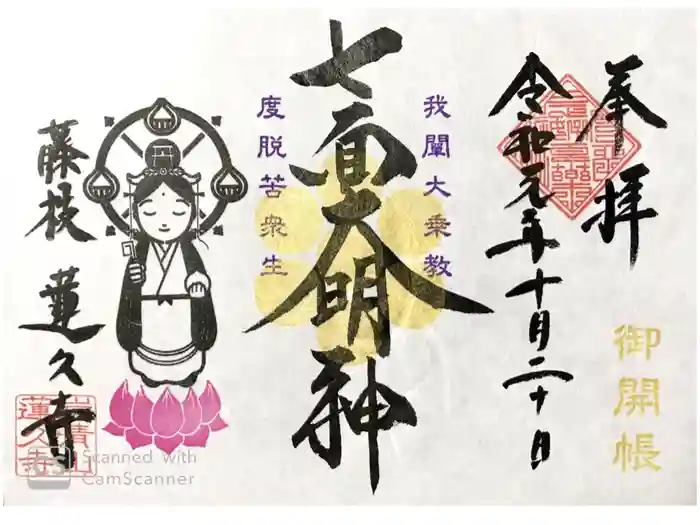 奉拝
御開帳
令和元年十月二十日
我闡大乗教
七面大明神
度脱苦衆生
藤枝 蓮久寺
蓮久寺
CS Scanned with
CamScanner